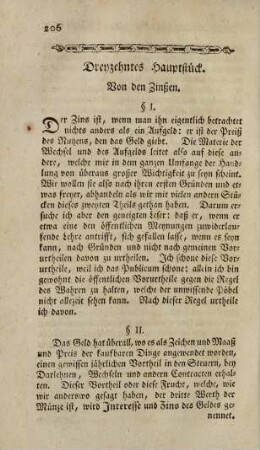 206
Dreyzehntes Hauptstück.
Von den Zinßen.
§ I.
Der Zins ist, wenn man ihn eigentlich betrachtet
nichts anders als ein Aufgeld: er ist der Preiß
des Nutzens, den das Geld giebt. Die Materie der
Wechsel und des Aufgelds leitet also auf diese an-
dere, welche mir in dem ganzen Umfange der Hand-
lung von überaus großer Wichtigkeit zu seyn scheint.
Wir wollen sie also nach ihren ersten Gründen und et-
was freyer, abhandeln als wir mit vielen andern Stü-
cken dieses zweyten Theils gethan haben. Darum er-
suche ich aber den geneigten Leser: daß er, wenn er
etwa eine den öffentlichen Meynungen zuwiderlau-
fende Lehre antrifft, sich gefallen lasse, wenn es seyn
kann, nach Gründen und nicht nach gemeinen Vor-
urtheilen davon zu urtheilen. Ich schone diese Vor-
urtheile nicht, weil ich das Publicum schone: ich bin
gewohnt die öffentlichen Vorurtheile gegen die Regel
des Wahren zu halten, welcher der unwissende Pöbel
nicht allezeit sehen kann. Nach dieser Regel urtheile
ich davon.
§ II.
Das Geld hat überall, wo es als Zeichen und Maaß
und Preis der kaufbaren Dinge angewendet worden,
einen gewissen jährlichen Vortheil in den Steuern, bey
Darlehnen, Wechseln und andern Contracten erhal-
ten. Dieser Vortheil oder diese Frucht, welche, wie
wir anderswo gesagt haben, der dritte Werth der
Münze ist, wird Interesse und Zins des Geldes ge-
nennet.